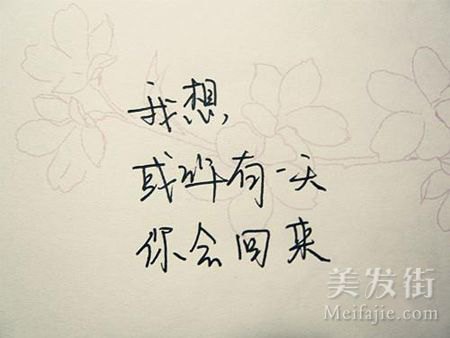 我想,
或许有一天
你会回来
美发街
Meifajie.com